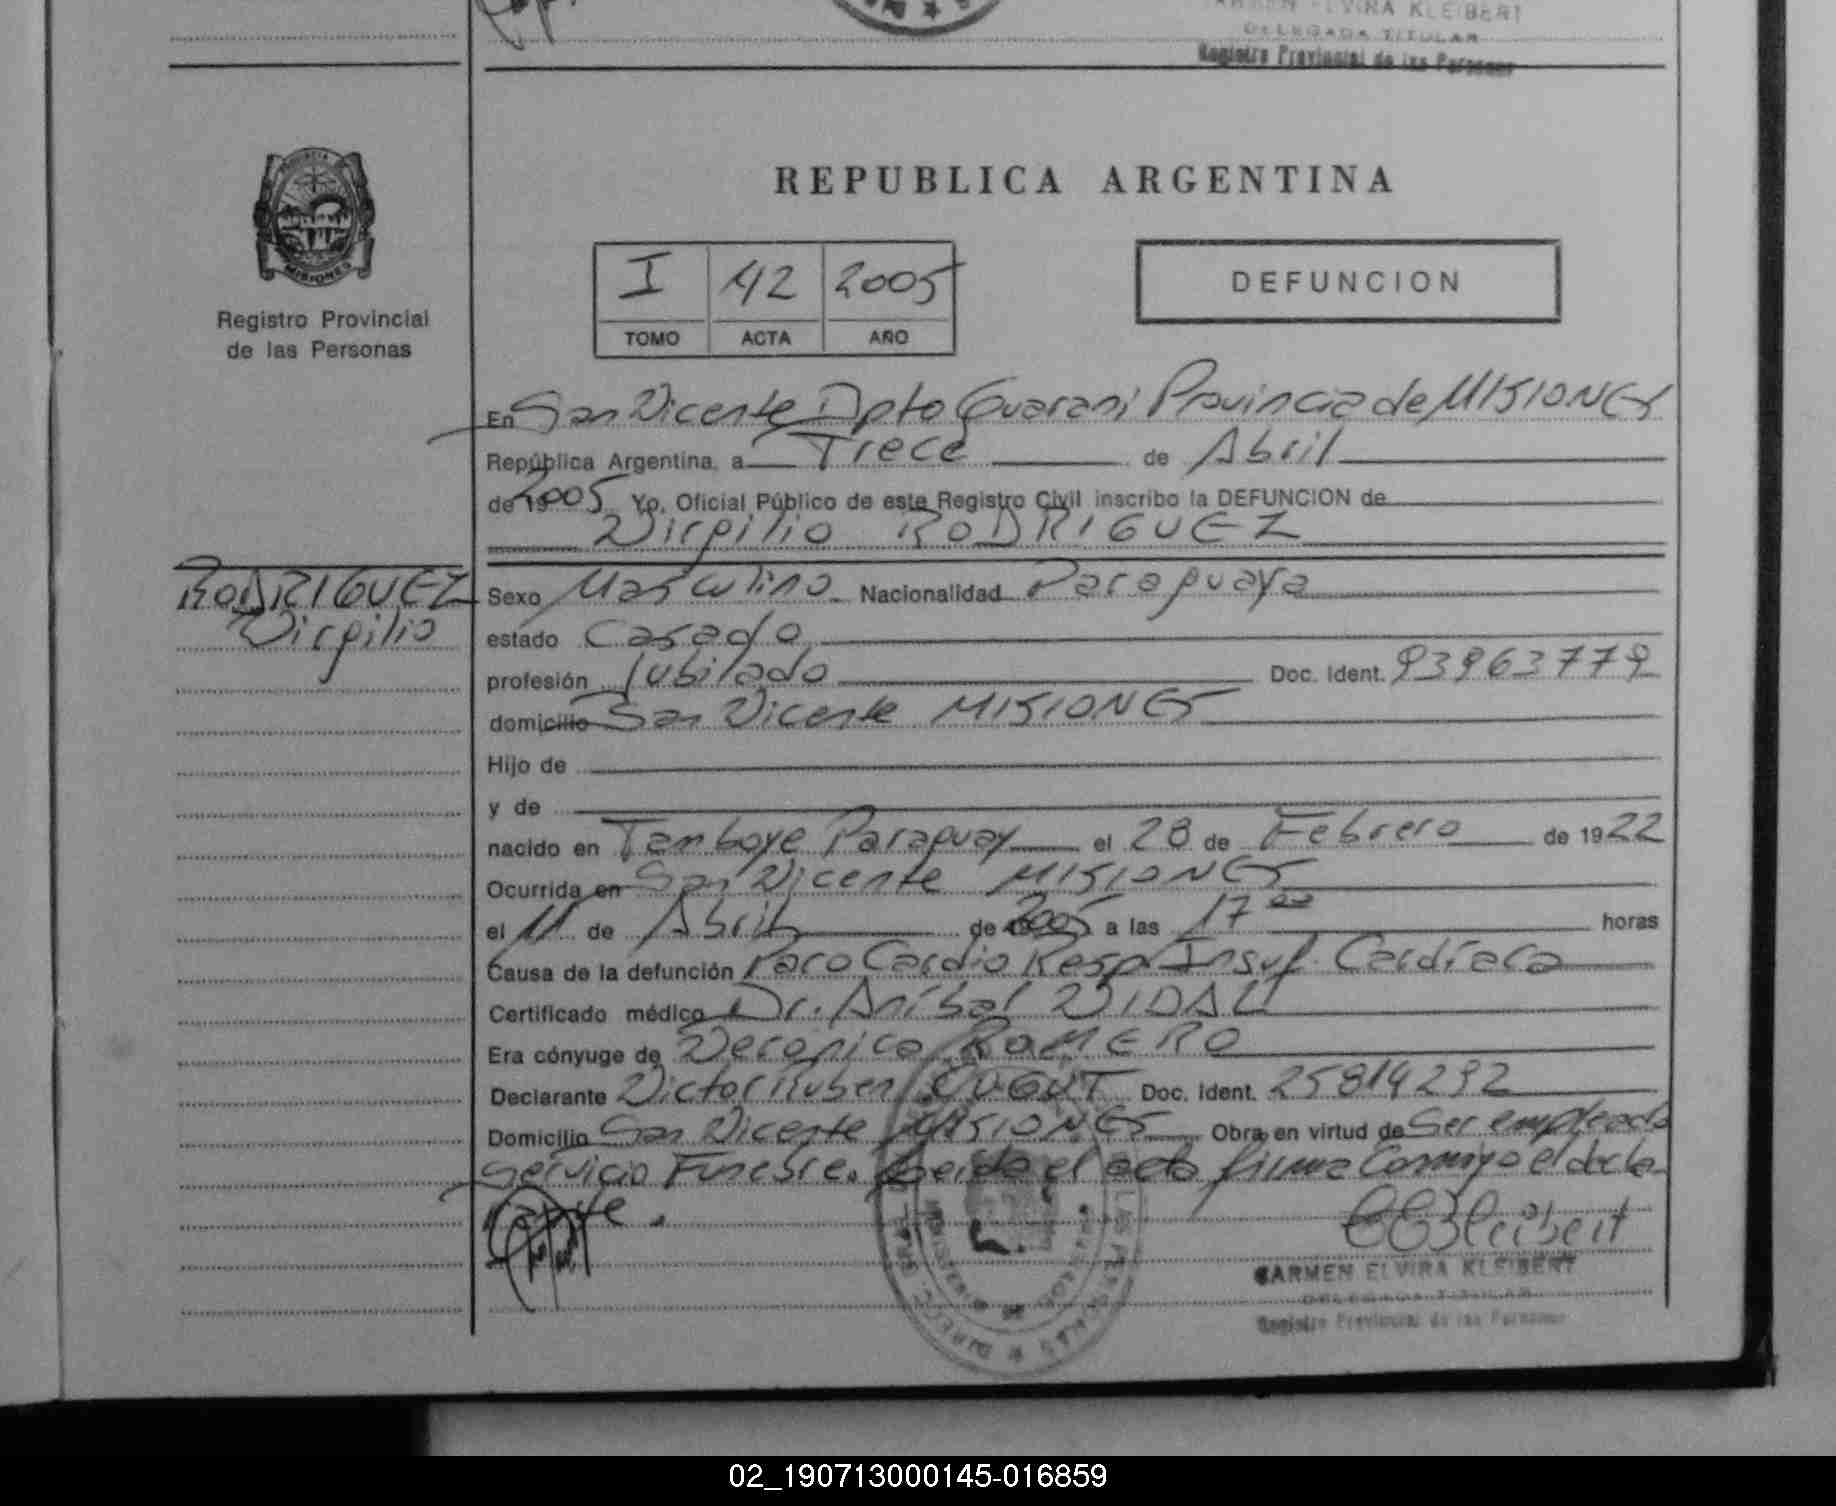 CARMEN ELVIRA KLEIBERT
DELEGADA TITULAR
Registro Provincial de las Personas
REPUBLICA ARGENTINA
PROVINCIA
MISIONES
Registro Provincial
de las Personas
I 42 2005
TOMO ACTA AÑO
DEFUNCION
En San Vicente Dpto Guarani Provincia de MISIONES
República Argentina, a Trece de Abril
de 19 2005 Yo, Oficial Público de este Registro Civil inscribo la DEFUNCION de
Virgilio RODRIGUEZ
RODRIGUEZ
Virgilio
Sexo Masculino Nacionalidad Paraguaya
estado Casado
profesión Jubilado Doc. Ident. 93963779
domicilio San Vicente MISIONES
Hijo de
y de
nacido en Temboye Paraguay el 28 de Febrero de 1922
Ocurrida en San Vicente MISIONES
el 11 de Abril de 2005 a las 17 00 horas
Causa de la defunción Paro Cardio Resp Insuf. Cardíaca
Certificado médico Dr. Aníbal VIDAL
Era cónyuge de Veronica ROMERO
Declarante Victor Ruben Doc. Ident. 25814292
Domicilio San Vicente MISIONES Obra en virtud de Ser empleado
Servicio Funebre. Leida el acta firma Conmigo el decla
rante.
CEKleibert
CARMEN ELVIRA KLEIBERT
DELEGADA TITULAR
Registro Provincial de las Personas
02_190713000145-016859